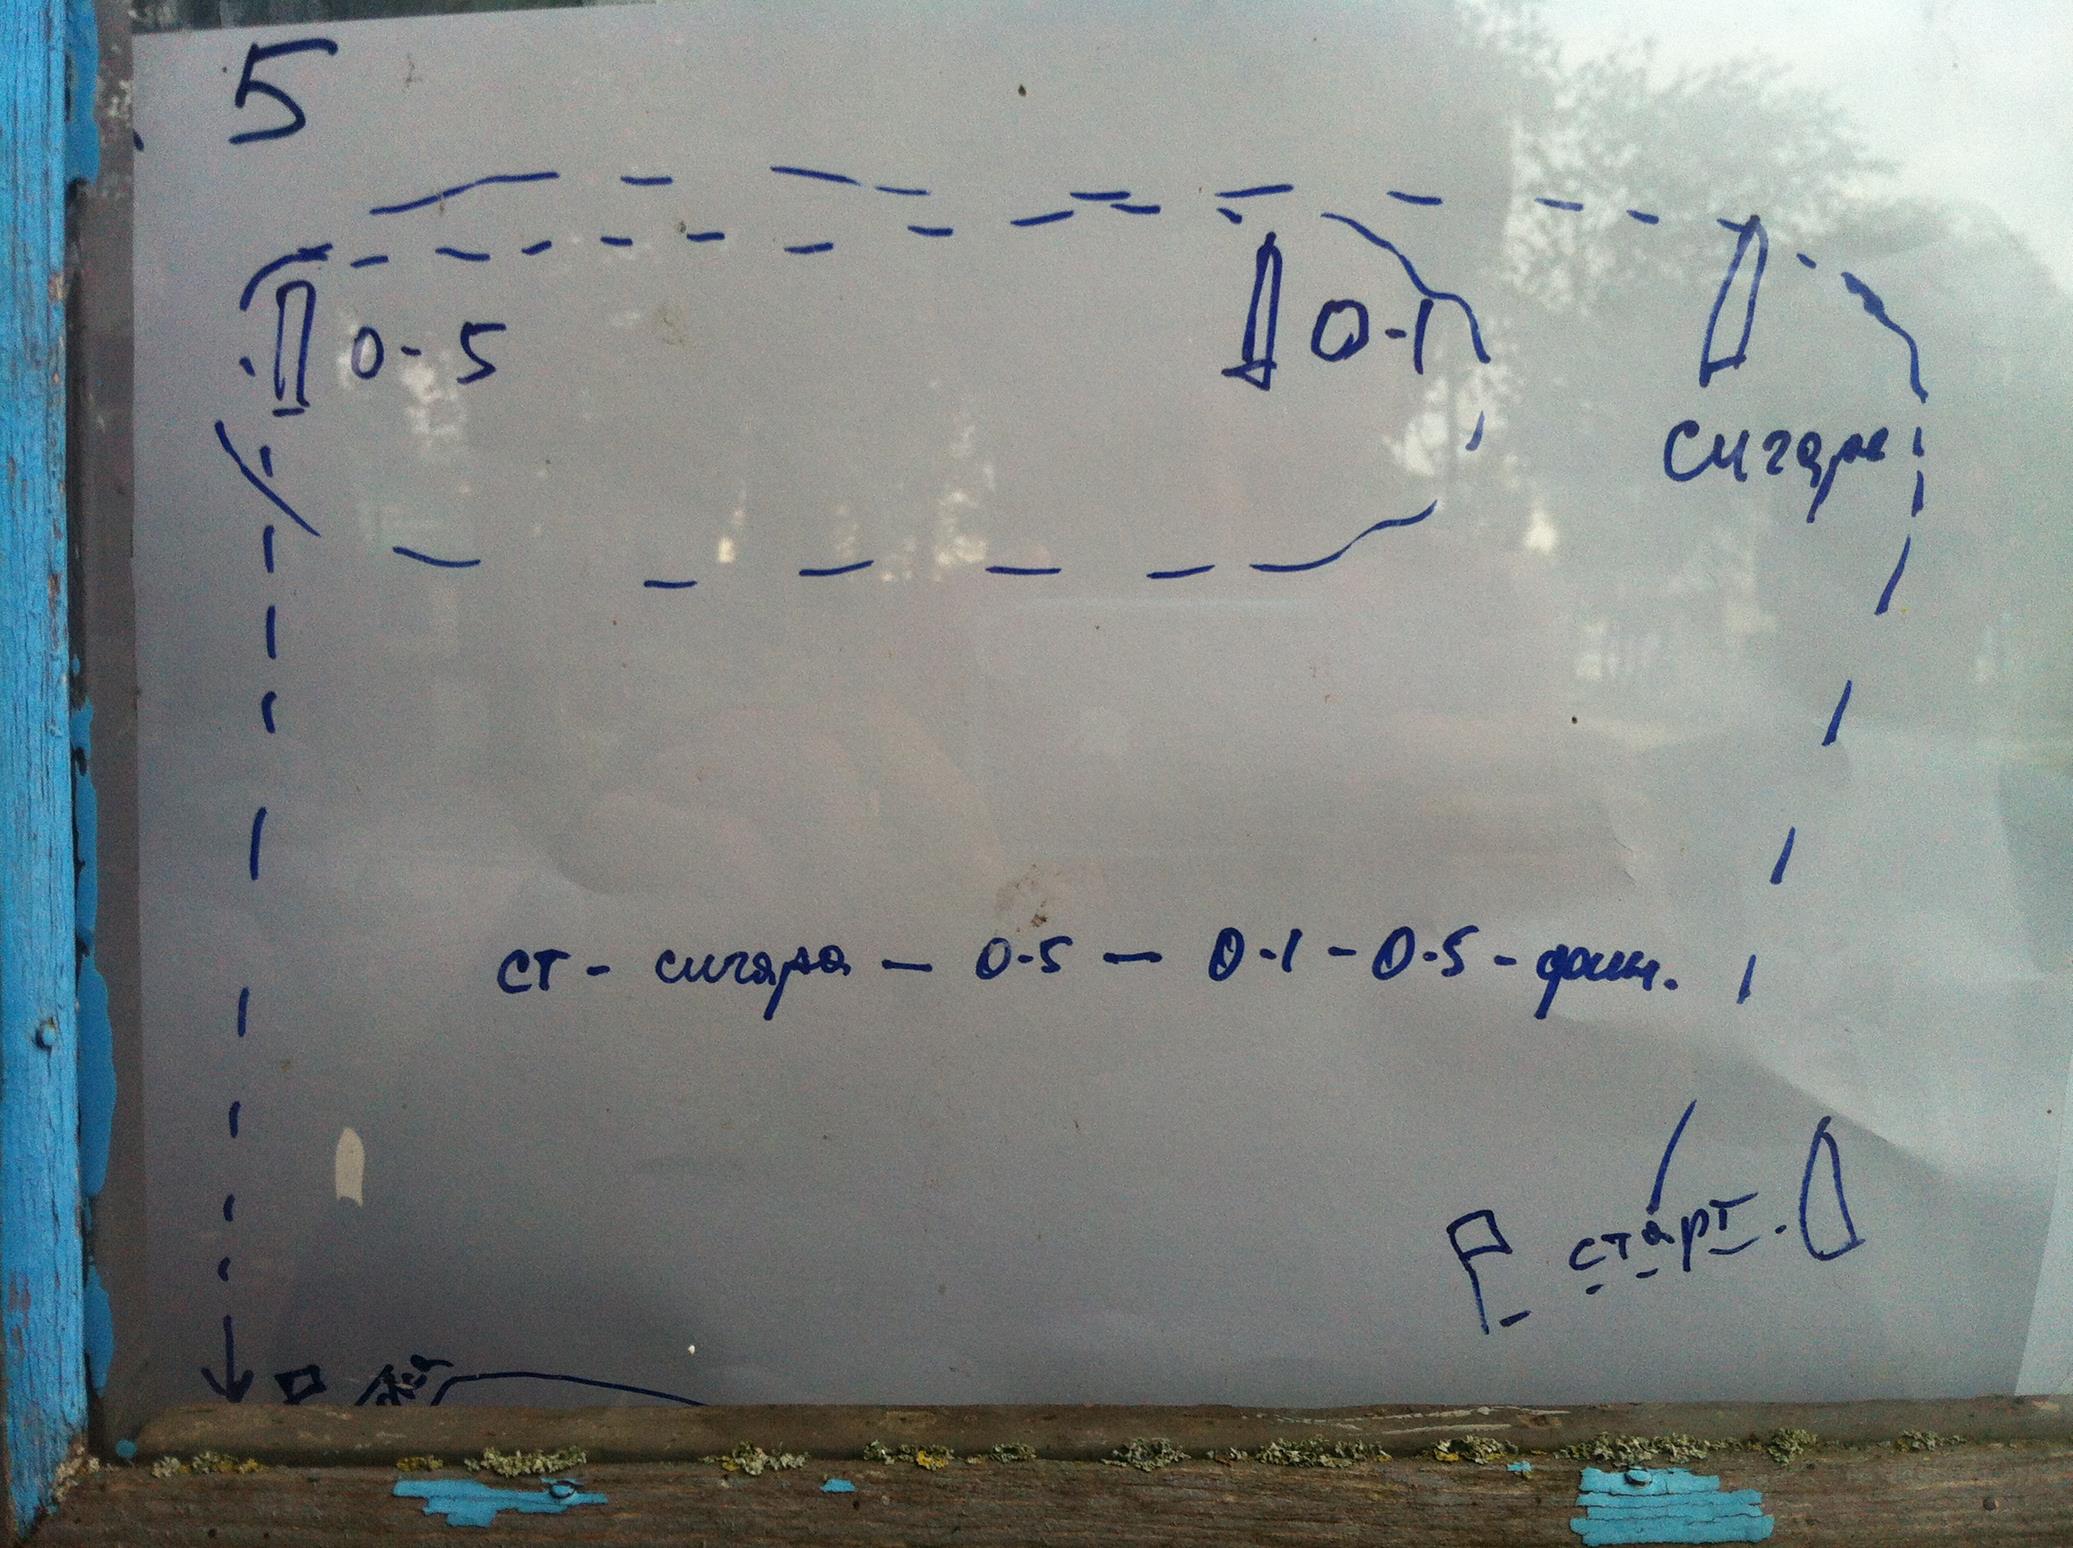 5
0-5
0-1
сигара
ст - сигара - 0-5 - 0-1 - 0-5 - финн.
старт